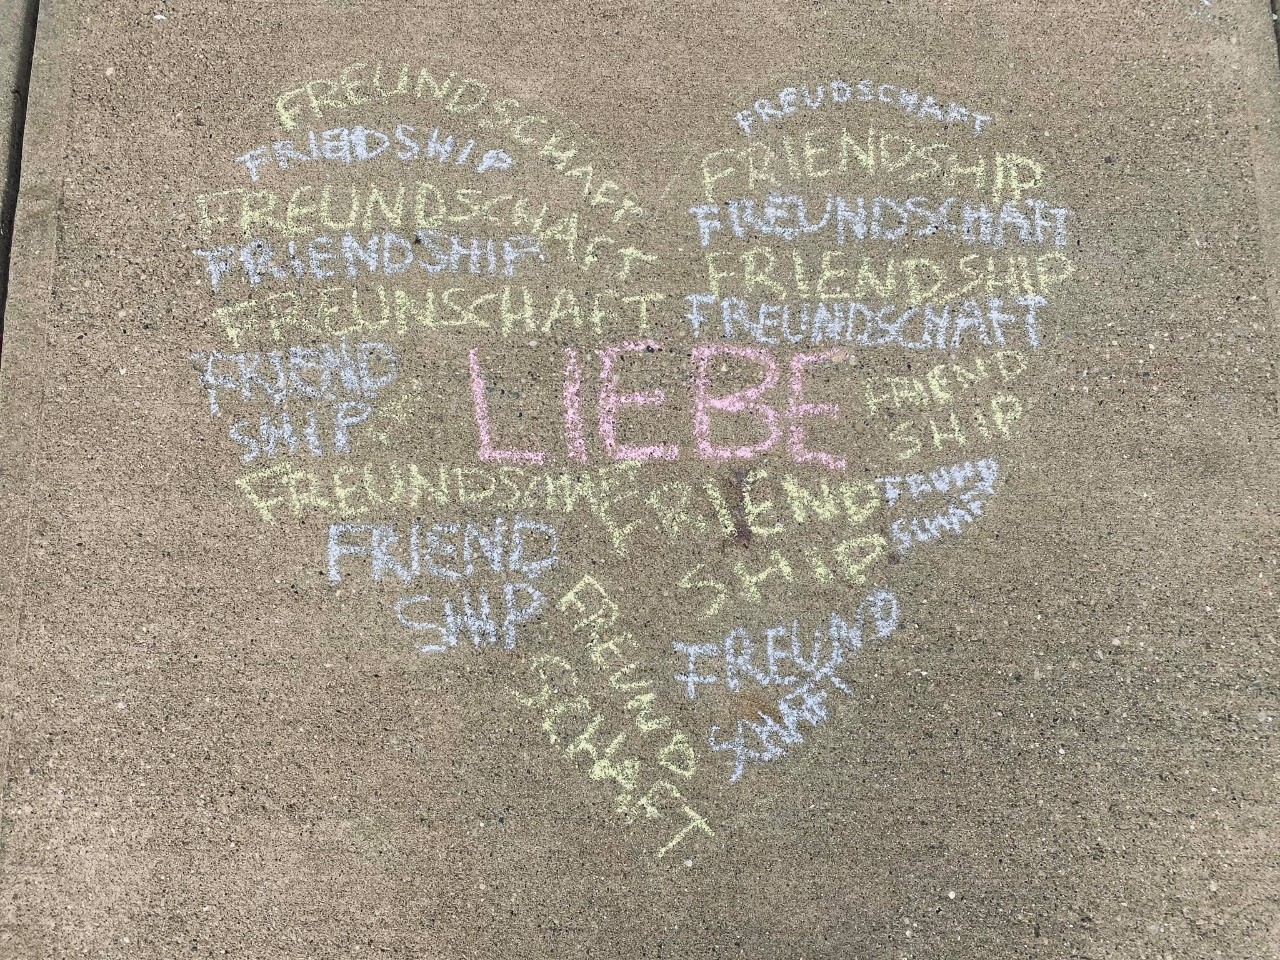 FREUNDSCHAFT
FRIEDSHIP
FREUNDSCHAFT
FRIENDSHIP
FREUNSCHAFT
FRIEND
SHIP
FREUDSCHAFT
FRIENDSHIP
FREUNDSCHAFT
FRIENDSHIP
FREUNDSCHAFT
LIEBE
FRIEND
SHIP
FREUNDSCHAF
FRIEND
SHIP
FRIEND
SHIP
FREUND
SCHAFT
FREUND
SCHAFT